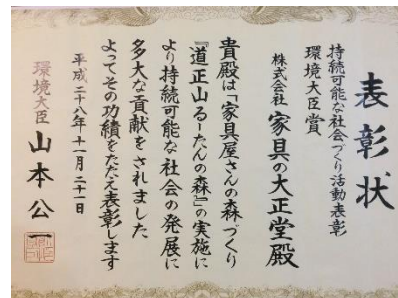 表彰状
持続可能な社会づくり活動表彰
環境大臣賞
株式会社 家具の大正堂殿
貴殿は「家具屋さんの森づくり
『道正山るーたんの森』」の実施に
より持続可能な社会の発展に
多大な貢献をされました
よってその功績をたたえ表彰します
平成二十八年十一月二十一日
環境大臣 山本公一